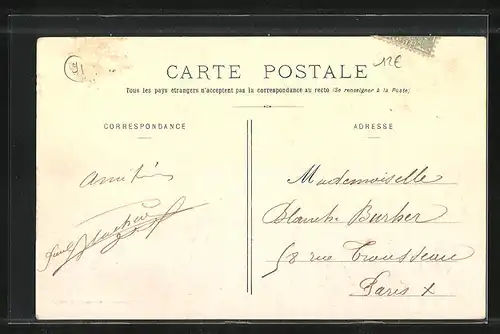 91
12€
CARTE POSTALE
Tous les pays étrangers n'acceptent pas la correspondance au recto (Se renseigner à la Poste)
CORRESPONDANCE
ADRESSE
Amitiés
Mademoiselle
Blanche Burker
58 rue Trousseau
Paris X